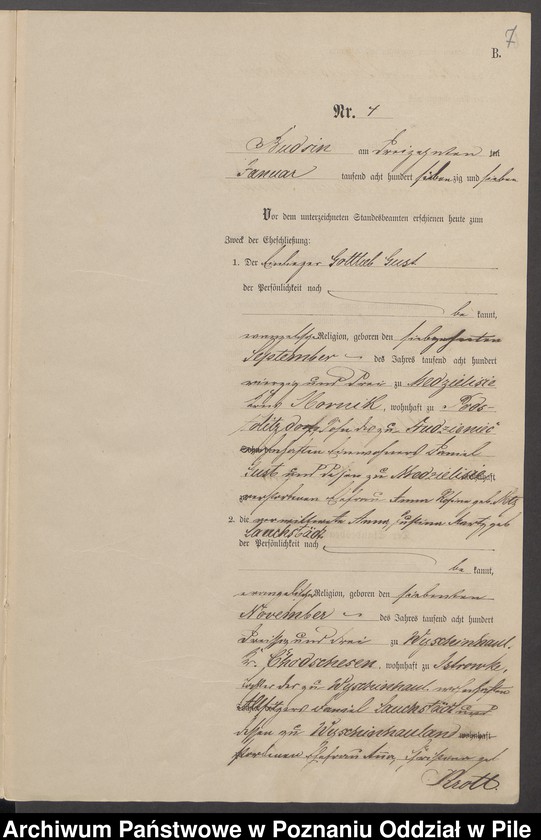 7
B.
Nr. 7
Budsin am dreizehnten ten
Januar tausend acht hundert siebenzig und sieben
Vor dem unterzeichneten Standesbeamten erschienen heute zum
Zweck der Eheschließung:
1. Der Einlieger Gottlieb Gust
der Persönlichkeit nach
be kannt,
evangelischer Religion, geboren den siebzehnten
September des Jahres tausend acht hundert
vierzig und drei zu
wohnhaft zu Pod-
Sohn des zu
wohnhaften Einwohners Daniel
Gust und dessen zu
verstorbenen Ehefrau Anna Rosine geb.
2. die verwittwete Anna Justina geb.
Sauchstädt
der Persönlichkeit nach
be kannt,
evangelischer Religion, geboren den siebenten
November des Jahres tausend acht hundert
dreißig und drei zu
Kr. Chodschesen, wohnhaft zu
Tochter des zu wohnhaften
Daniel Sauchstädt und
dessen zu wohnhaft
storbenen Ehefrau Anna geb.
Krott
Archiwum Państwowe w Poznaniu Oddział w Pile